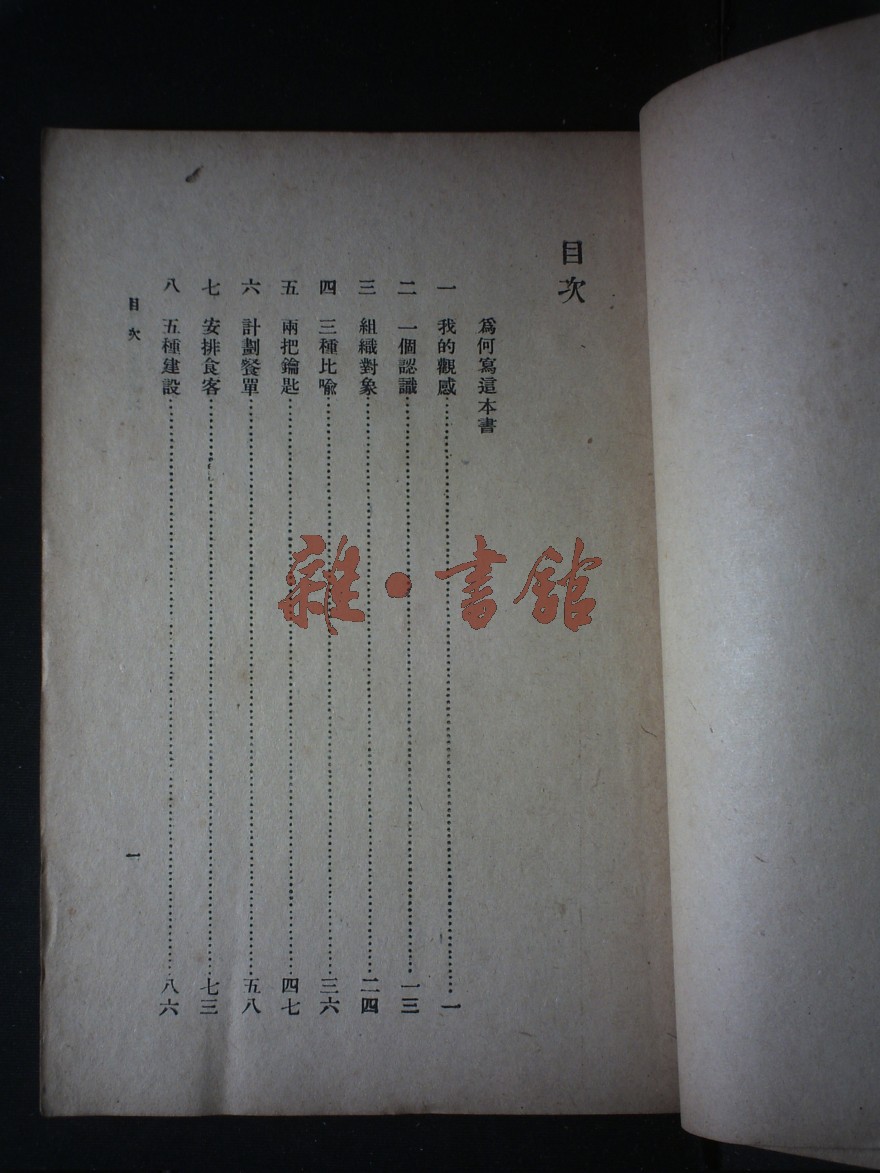 目次
為何寫這本書
一 我的觀感……一
二 一個認識……一三
三 組織對象……二四
四 三種比喻……三六
五 兩把鑰匙……四七
六 計劃餐單……五八
七 安排食客……七三
八 五種建設……八六
目次
一
雜·書館